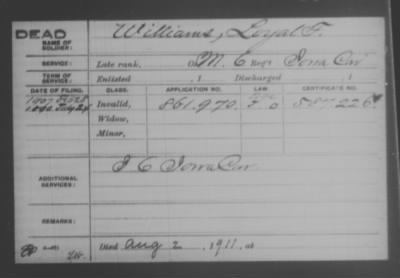 DEAD
NAME OF SOLDIER: Williams, Loyal F.
SERVICE: Late rank, Co. M, 6 Reg't Iowa Cav
TERM OF SERVICE: Enlisted , 1 Discharged , 1
DATE OF FILING. CLASS. APPLICATION NO. LAW. CERTIFICATE NO.
Invalid, 861.970 587.226
Widow,
Minor,
ADDITIONAL SERVICES: I 6 Iowa Cav.
REMARKS:
Died Aug 2, 1911, at